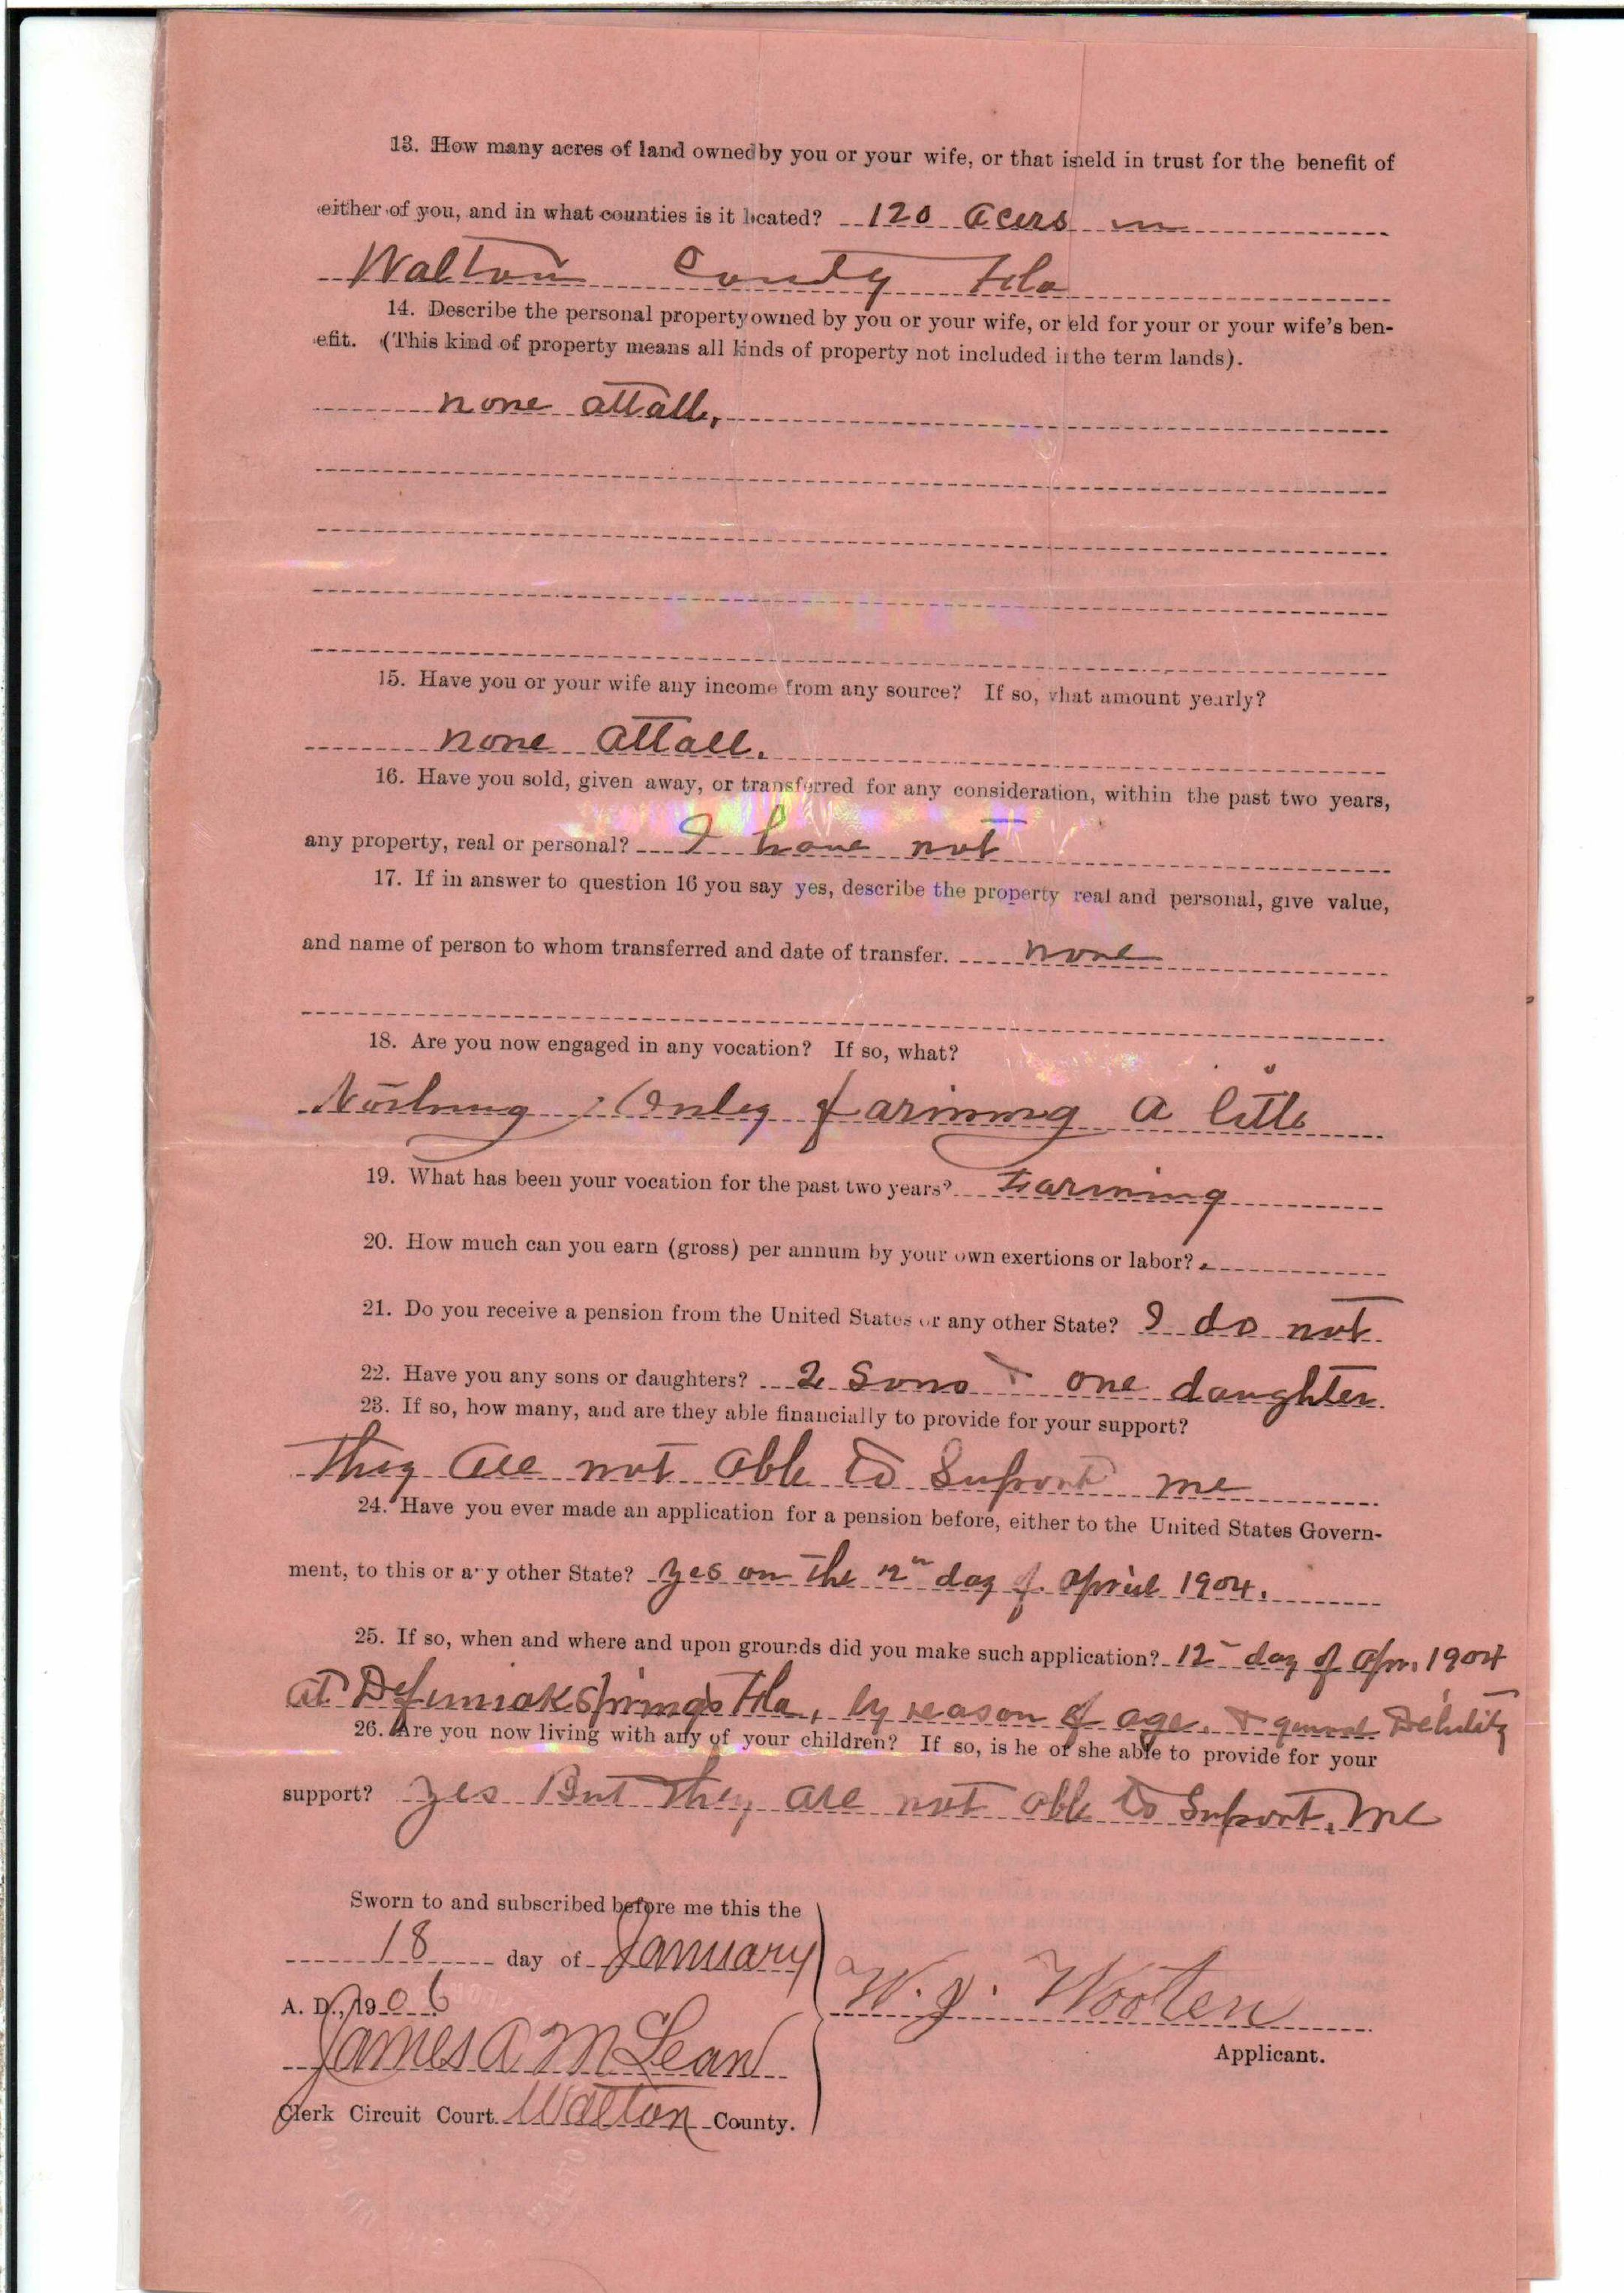 13. How many acres of land owned by you or your wife, or that is held in trust for the benefit of
either of you, and in what counties is it located? 120 acers in
Walton County Fla
14. Describe the personal property owned by you or your wife, or eld for your or your wife's ben-
efit. (This kind of property means all kinds of property not included in the term lands).
none attall,
15. Have you or your wife any income from any source? If so, what amount yearly?
none attall.
16. Have you sold, given away, or transferred for any consideration, within the past two years,
any property, real or personal? I have not
17. If in answer to question 16 you say yes, describe the property real and personal, give value,
and name of person to whom transferred and date of transfer. none
18. Are you now engaged in any vocation? If so, what?
Nothing, Onley farming a little
19. What has been your vocation for the past two years? Farming
20. How much can you earn (gross) per annum by your own exertions or labor?
21. Do you receive a pension from the United States or any other State? I do not
22. Have you any sons or daughters? 2 Sons & one daughter.
23. If so, how many, and are they able financially to provide for your support?
They are not able to Suport me
24. Have you ever made an application for a pension before, either to the United States Govern-
ment, to this or any other State? yes on the 12 day of Apriel 1904.
25. If so, when and where and upon grounds did you make such application? 12 day of Apr. 1904
at Defuniak Springs Fla, by reason of age. & general Debility
26. Are you now living with any of your children? If so, is he or she able to provide for your
support? yes But They are not able to Suport. me
Sworn to and subscribed before me this the
18 day of January
A. D., 1906
W. J. Wooten
Applicant.
James A McLean
Clerk Circuit Court. Walton County.